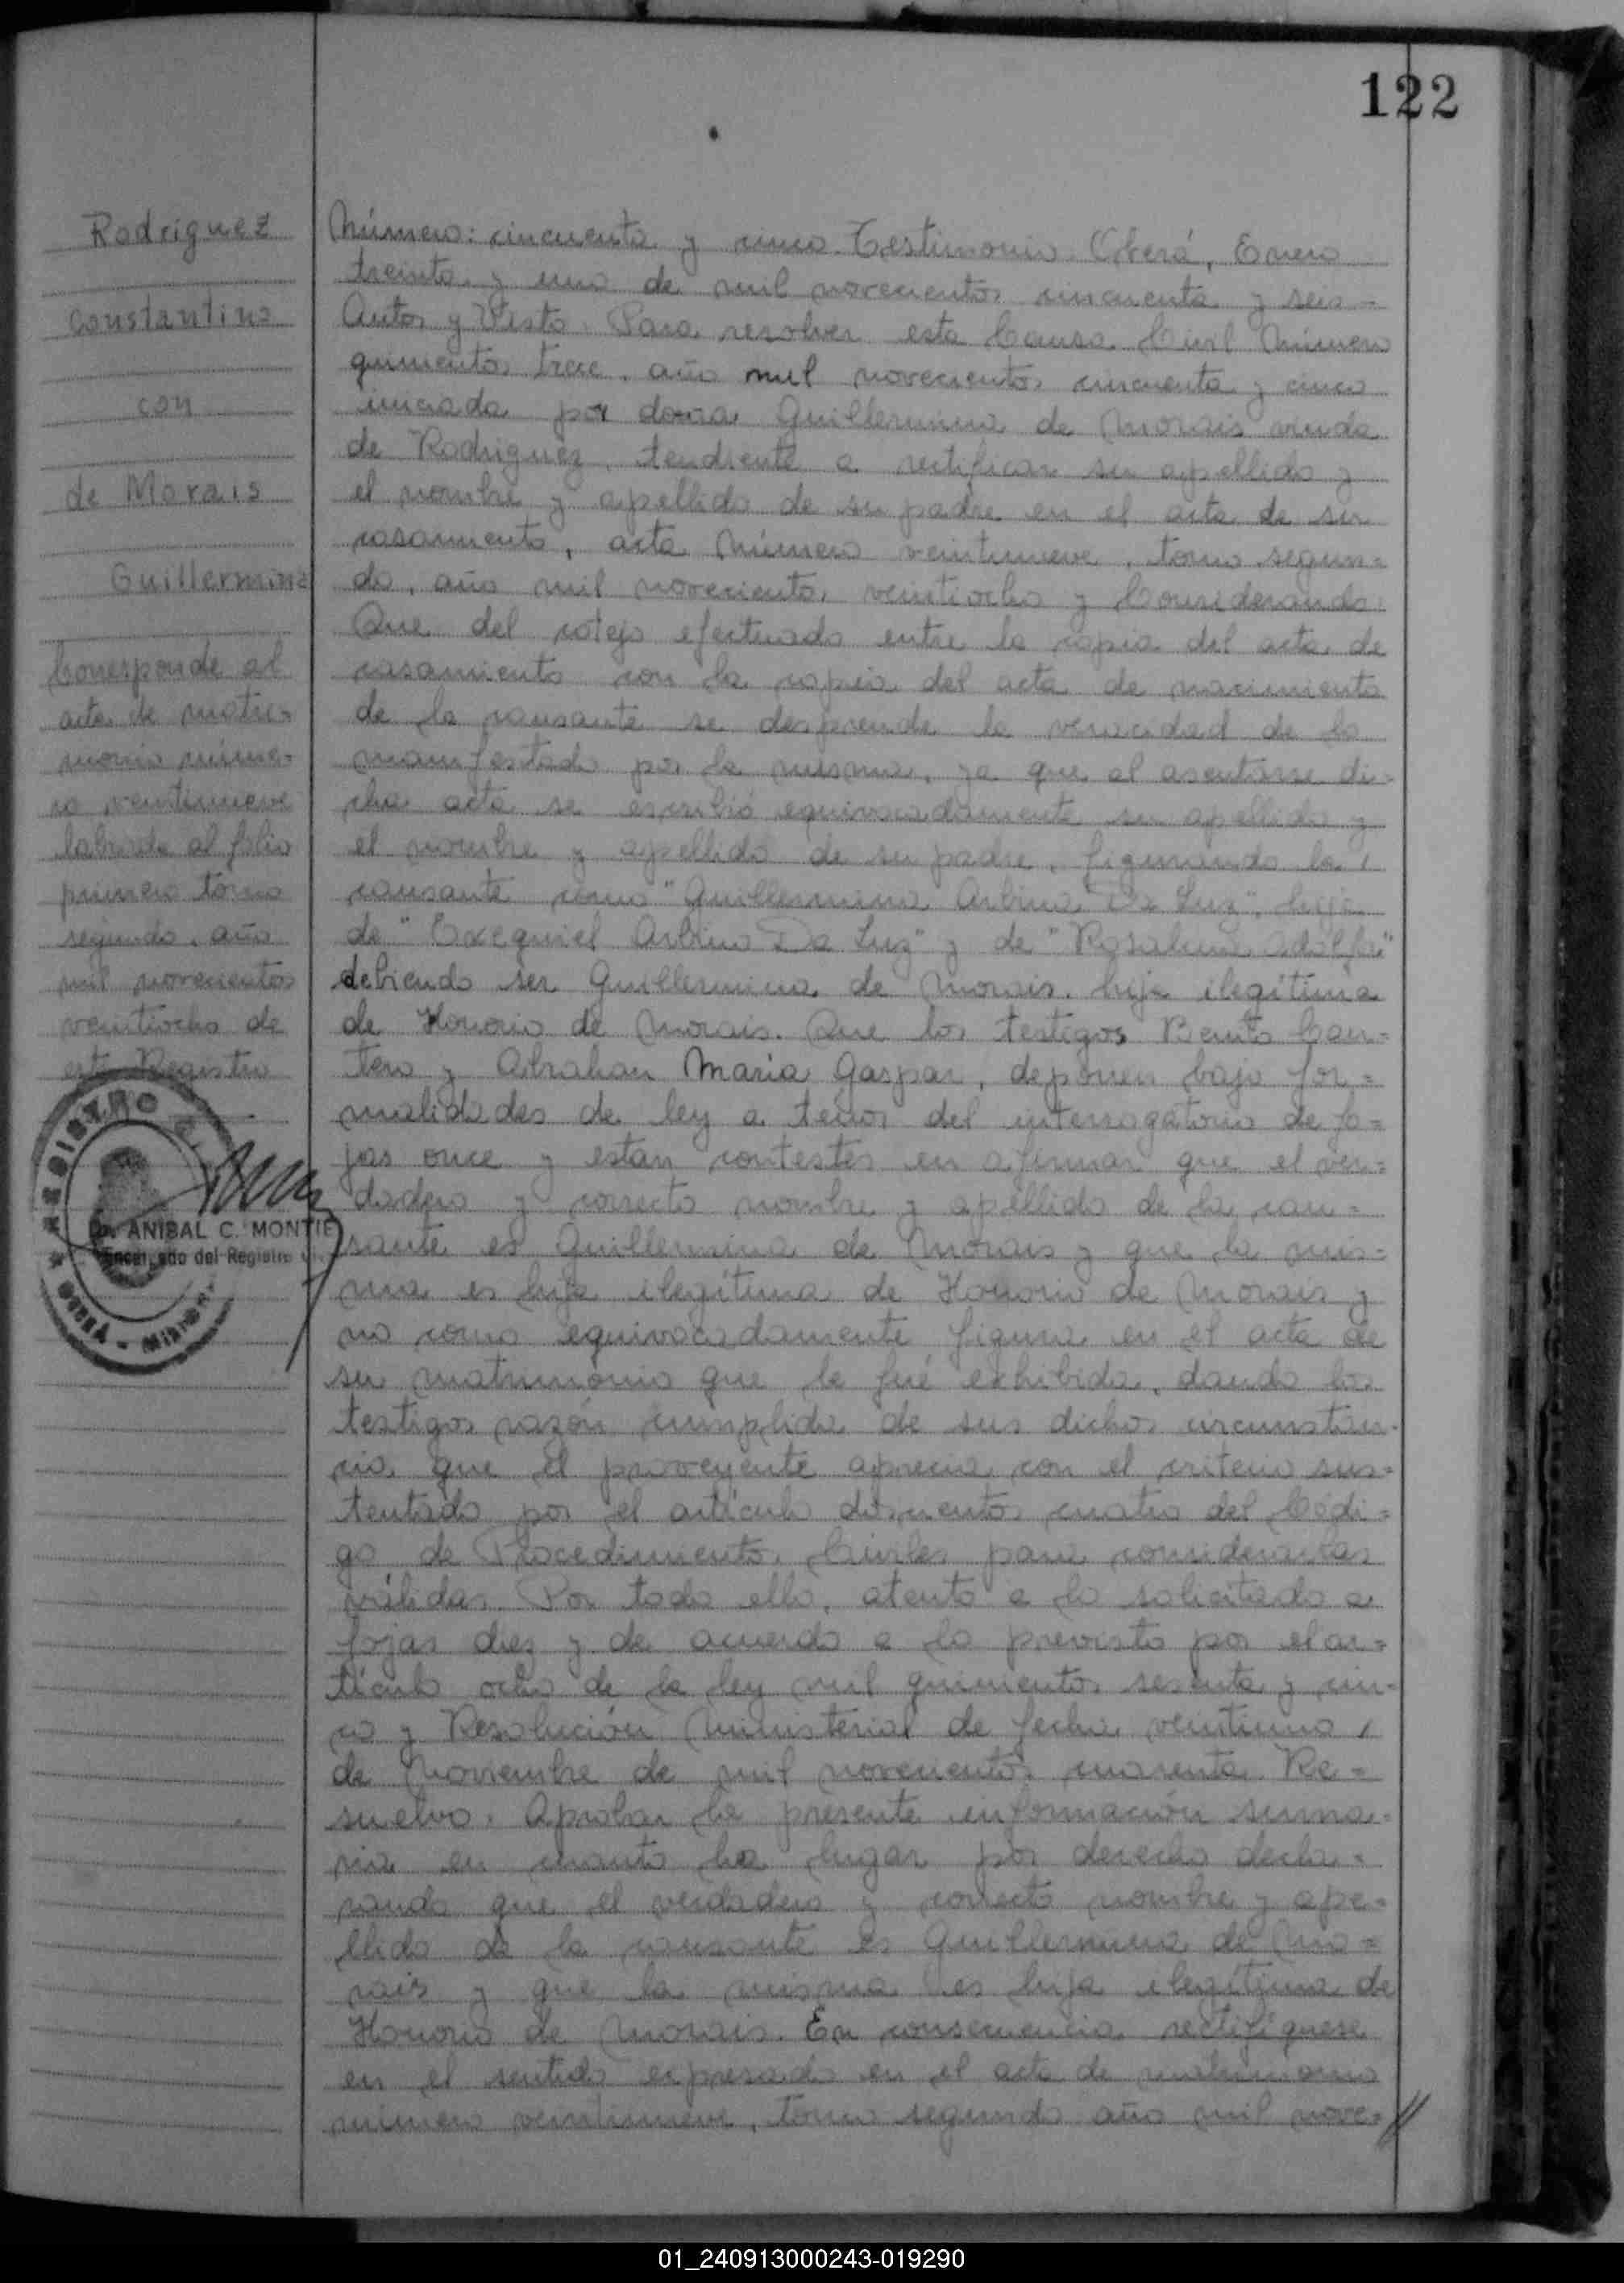 122
Rodriguez
constantino
con
de Morais
Guillermina
Corresponde al
acta de matri-
monio núme-
ro veintinueve
labrada al folio
primero tomo
segundo, año
mil novecientos
veintiocho de
este Registro
REGISTRO
Dr. ANIBAL C. MONTIE
Encargado del Registro
OBERA - MISIONES
Número: cincuenta y cinco. Testimonio. Oberá, Enero
treinta y uno de mil novecientos cincuenta y seis -
Autos y Visto. Para resolver esta Causa Civil Número
quinientos trece, año mil novecientos cincuenta y cinco
iniciada por doña Guillermina de Morais viuda
de Rodriguez, tendiente a rectificar su apellido y
el nombre y apellido de su padre en el acta de su
casamiento, acta Número veintinueve, tomo segun=
do, año mil novecientos veintiocho y Considerando:
Que del cotejo efectuado entre la copia del acta de
casamiento con la copia del acta de nacimiento
de la causante se desprende la veracidad de lo
manifestado por la misma, ya que al asentarse di=
cha acta se escribió equivocadamente su apellido y
el nombre y apellido de su padre, figurando la
causante como "Guillermina Arbino Da Luz", hija
de "Exequiel Arbino Da Luz" y de "Rosalina Adolfa"
debiendo ser Guillermina de Morais, hija ilegítima
de Honorio de Morais. Que los testigos Benito Can=
tero y Abrahan Maria Gaspar, deponen bajo for=
malidades de ley a tenor del interrogatorio de fo=
jas once y estan contestes en afirmar que el ver=
dadero y correcto nombre y apellido de la cau=
sante es Guillermina de Morais y que la mis=
ma es hija ilegítima de Honorio de Morais y
no como equivocadamente figura en el acta de
su matrimonio que le fué exhibida, dando los
testigos razón cumplida de sus dichos circunstan-
cia que el proveyente aprecia con el criterio sus=
tentado por el artículo doscientos cuatro del Códi=
go de Procedimientos Civiles para considerarlas
válidas. Por todo ello, atento a lo solicitado a
fojas diez y de acuerdo a lo previsto por el ar=
tículo ocho de la ley mil quinientos sesenta y cin-
co y Resolución Ministerial de fecha veintiuno
de Noviembre de mil novecientos cuarenta. Re=
suelvo. Aprobar la presente información suma-
ria en cuanto ha lugar por derecho decla=
rando que el verdadero y correcto nombre y ape=
llido de la causante es Guillermina de Mo=
rais y que la misma es hija ilegítima de
Honorio de Morais. En consecuencia rectifíquese
en el sentido expresado en el acta de matrimonio
número veintinueve, tomo segundo año mil nove- //
01_240913000243-019290